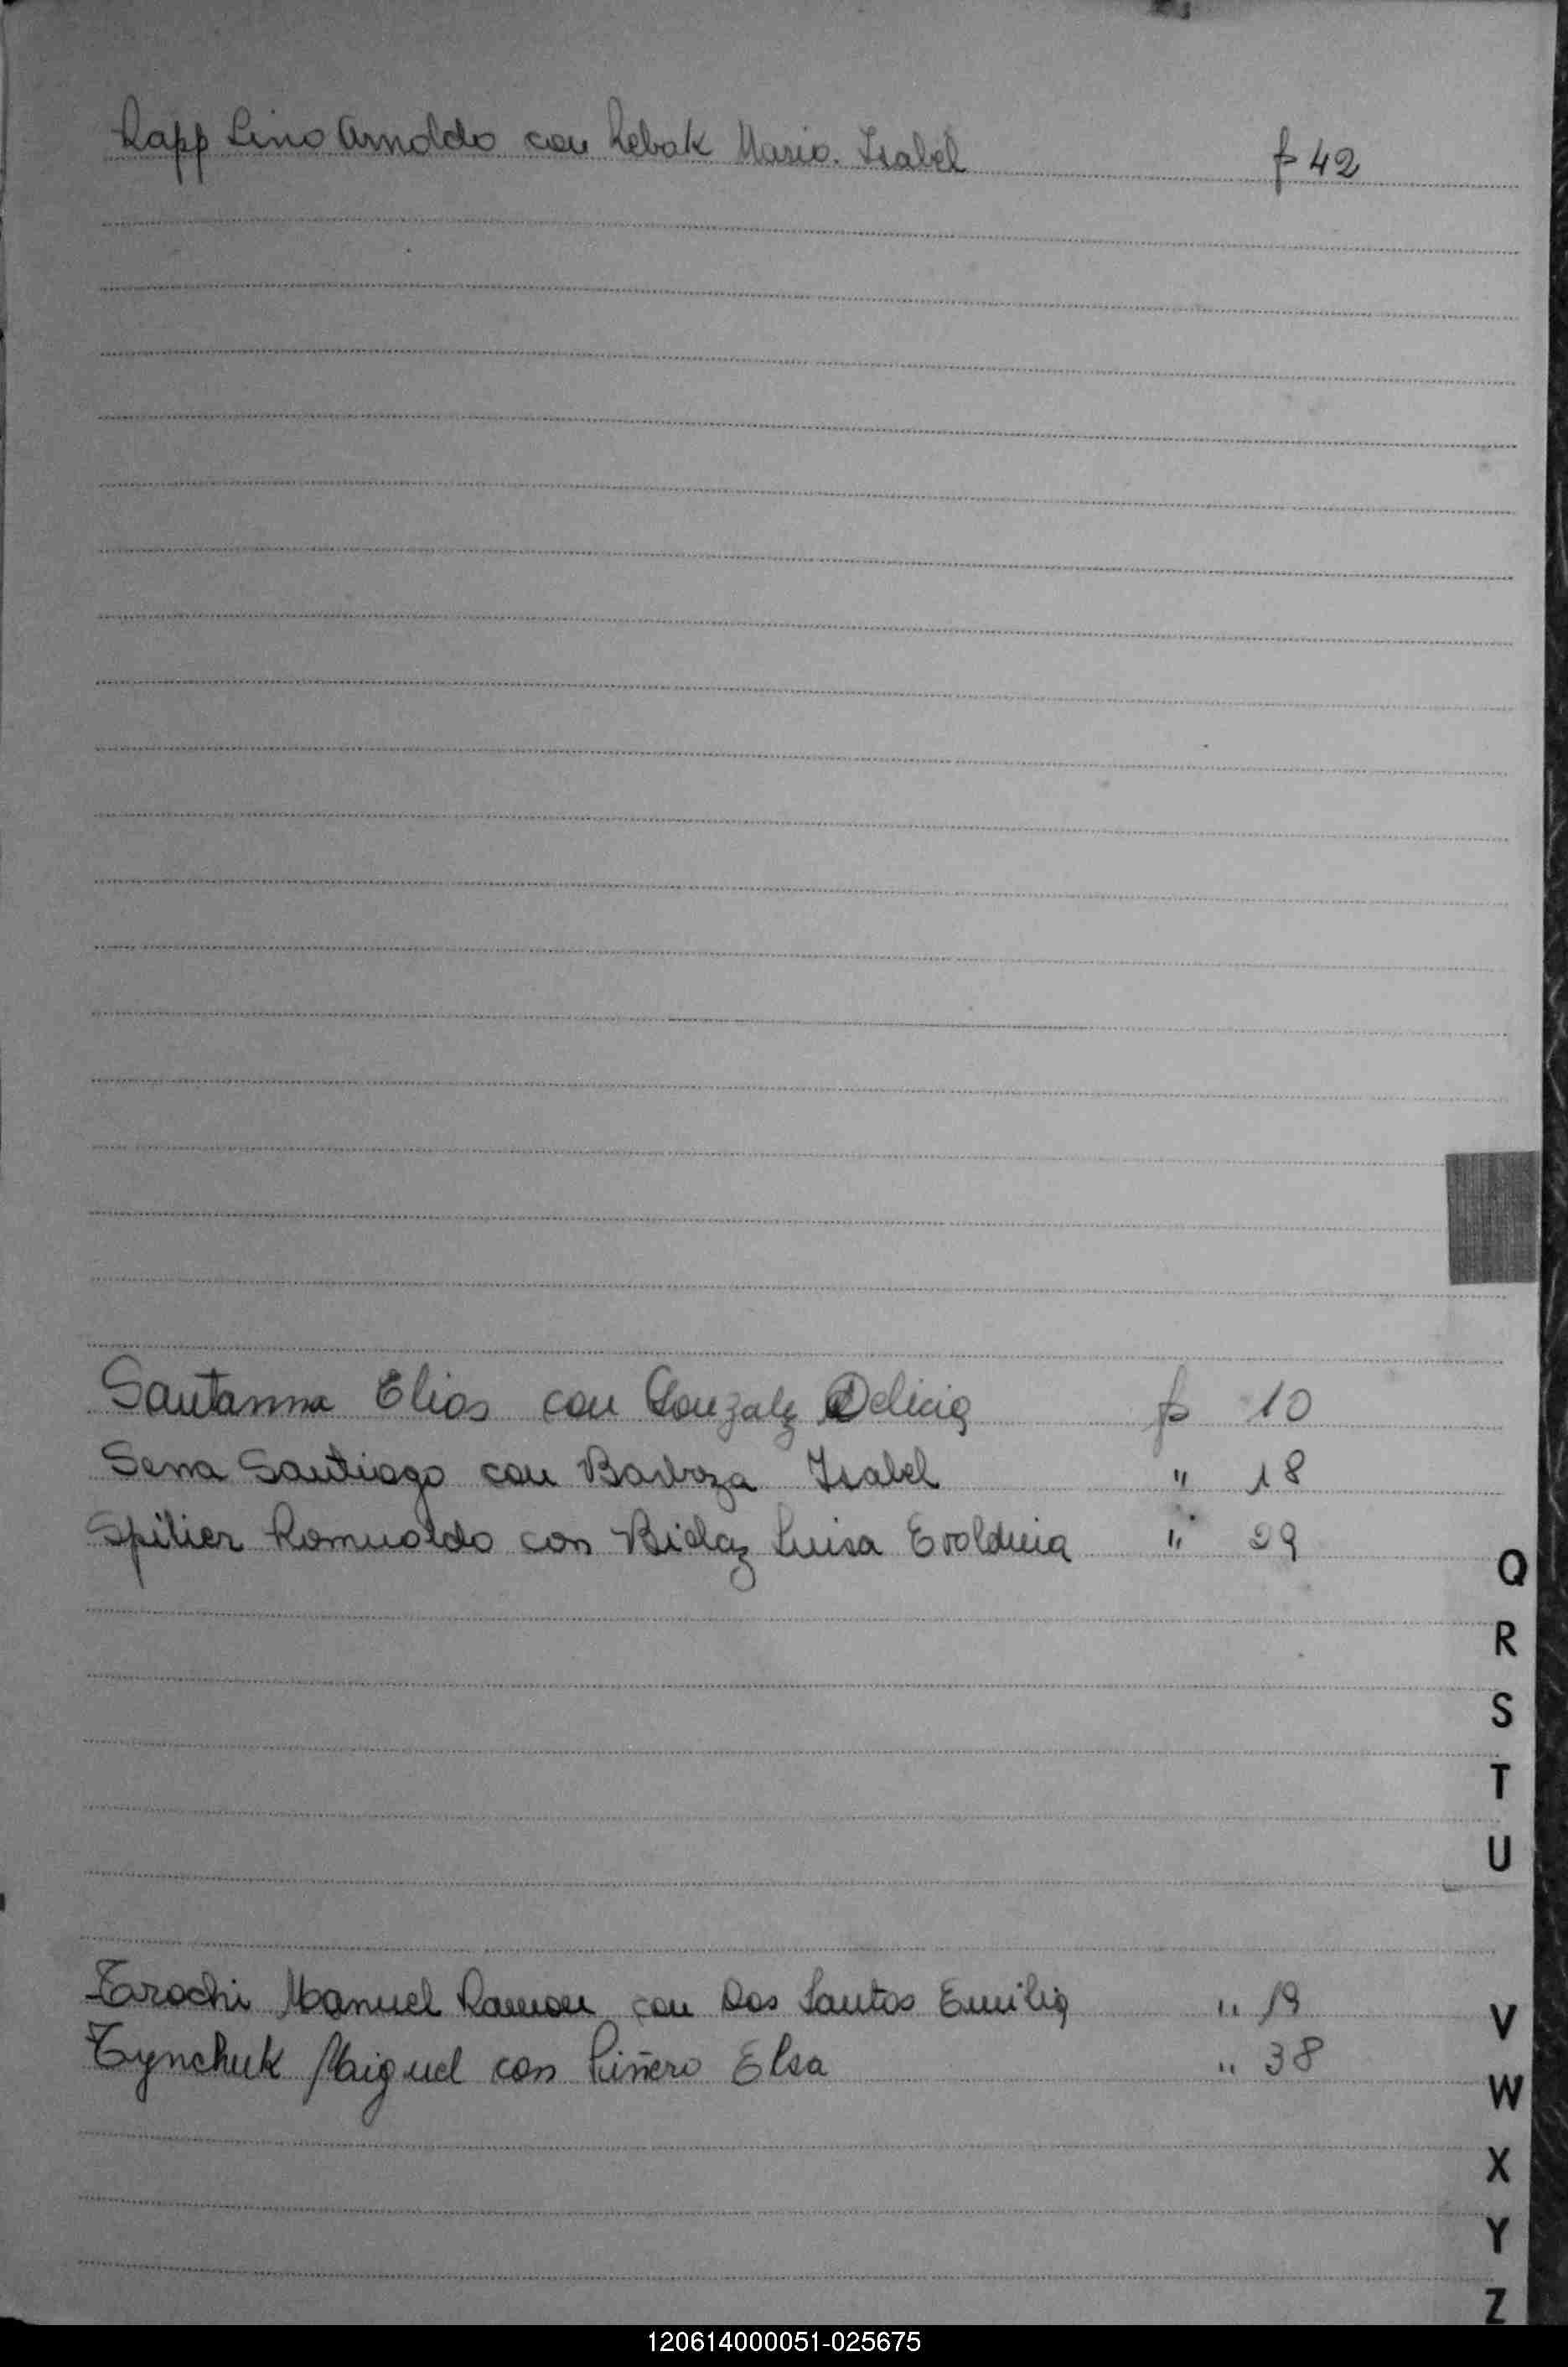 Rapp Lino Arnoldo con Rebak Maria Isabel f 42
Santanna Elias con Gonzalz Delicia f 10
Serra Santiago con Barboza Isabel " 18
Spilier Romualdo con Bidaz Luisa " 29
Q
R
S
T
U
Trochi Manuel Ramon con Dos Santos Emilia " 19
Tynchuk Miguel con Piñero Elsa " 38
V
W
X
Y
Z
120614000051-025675